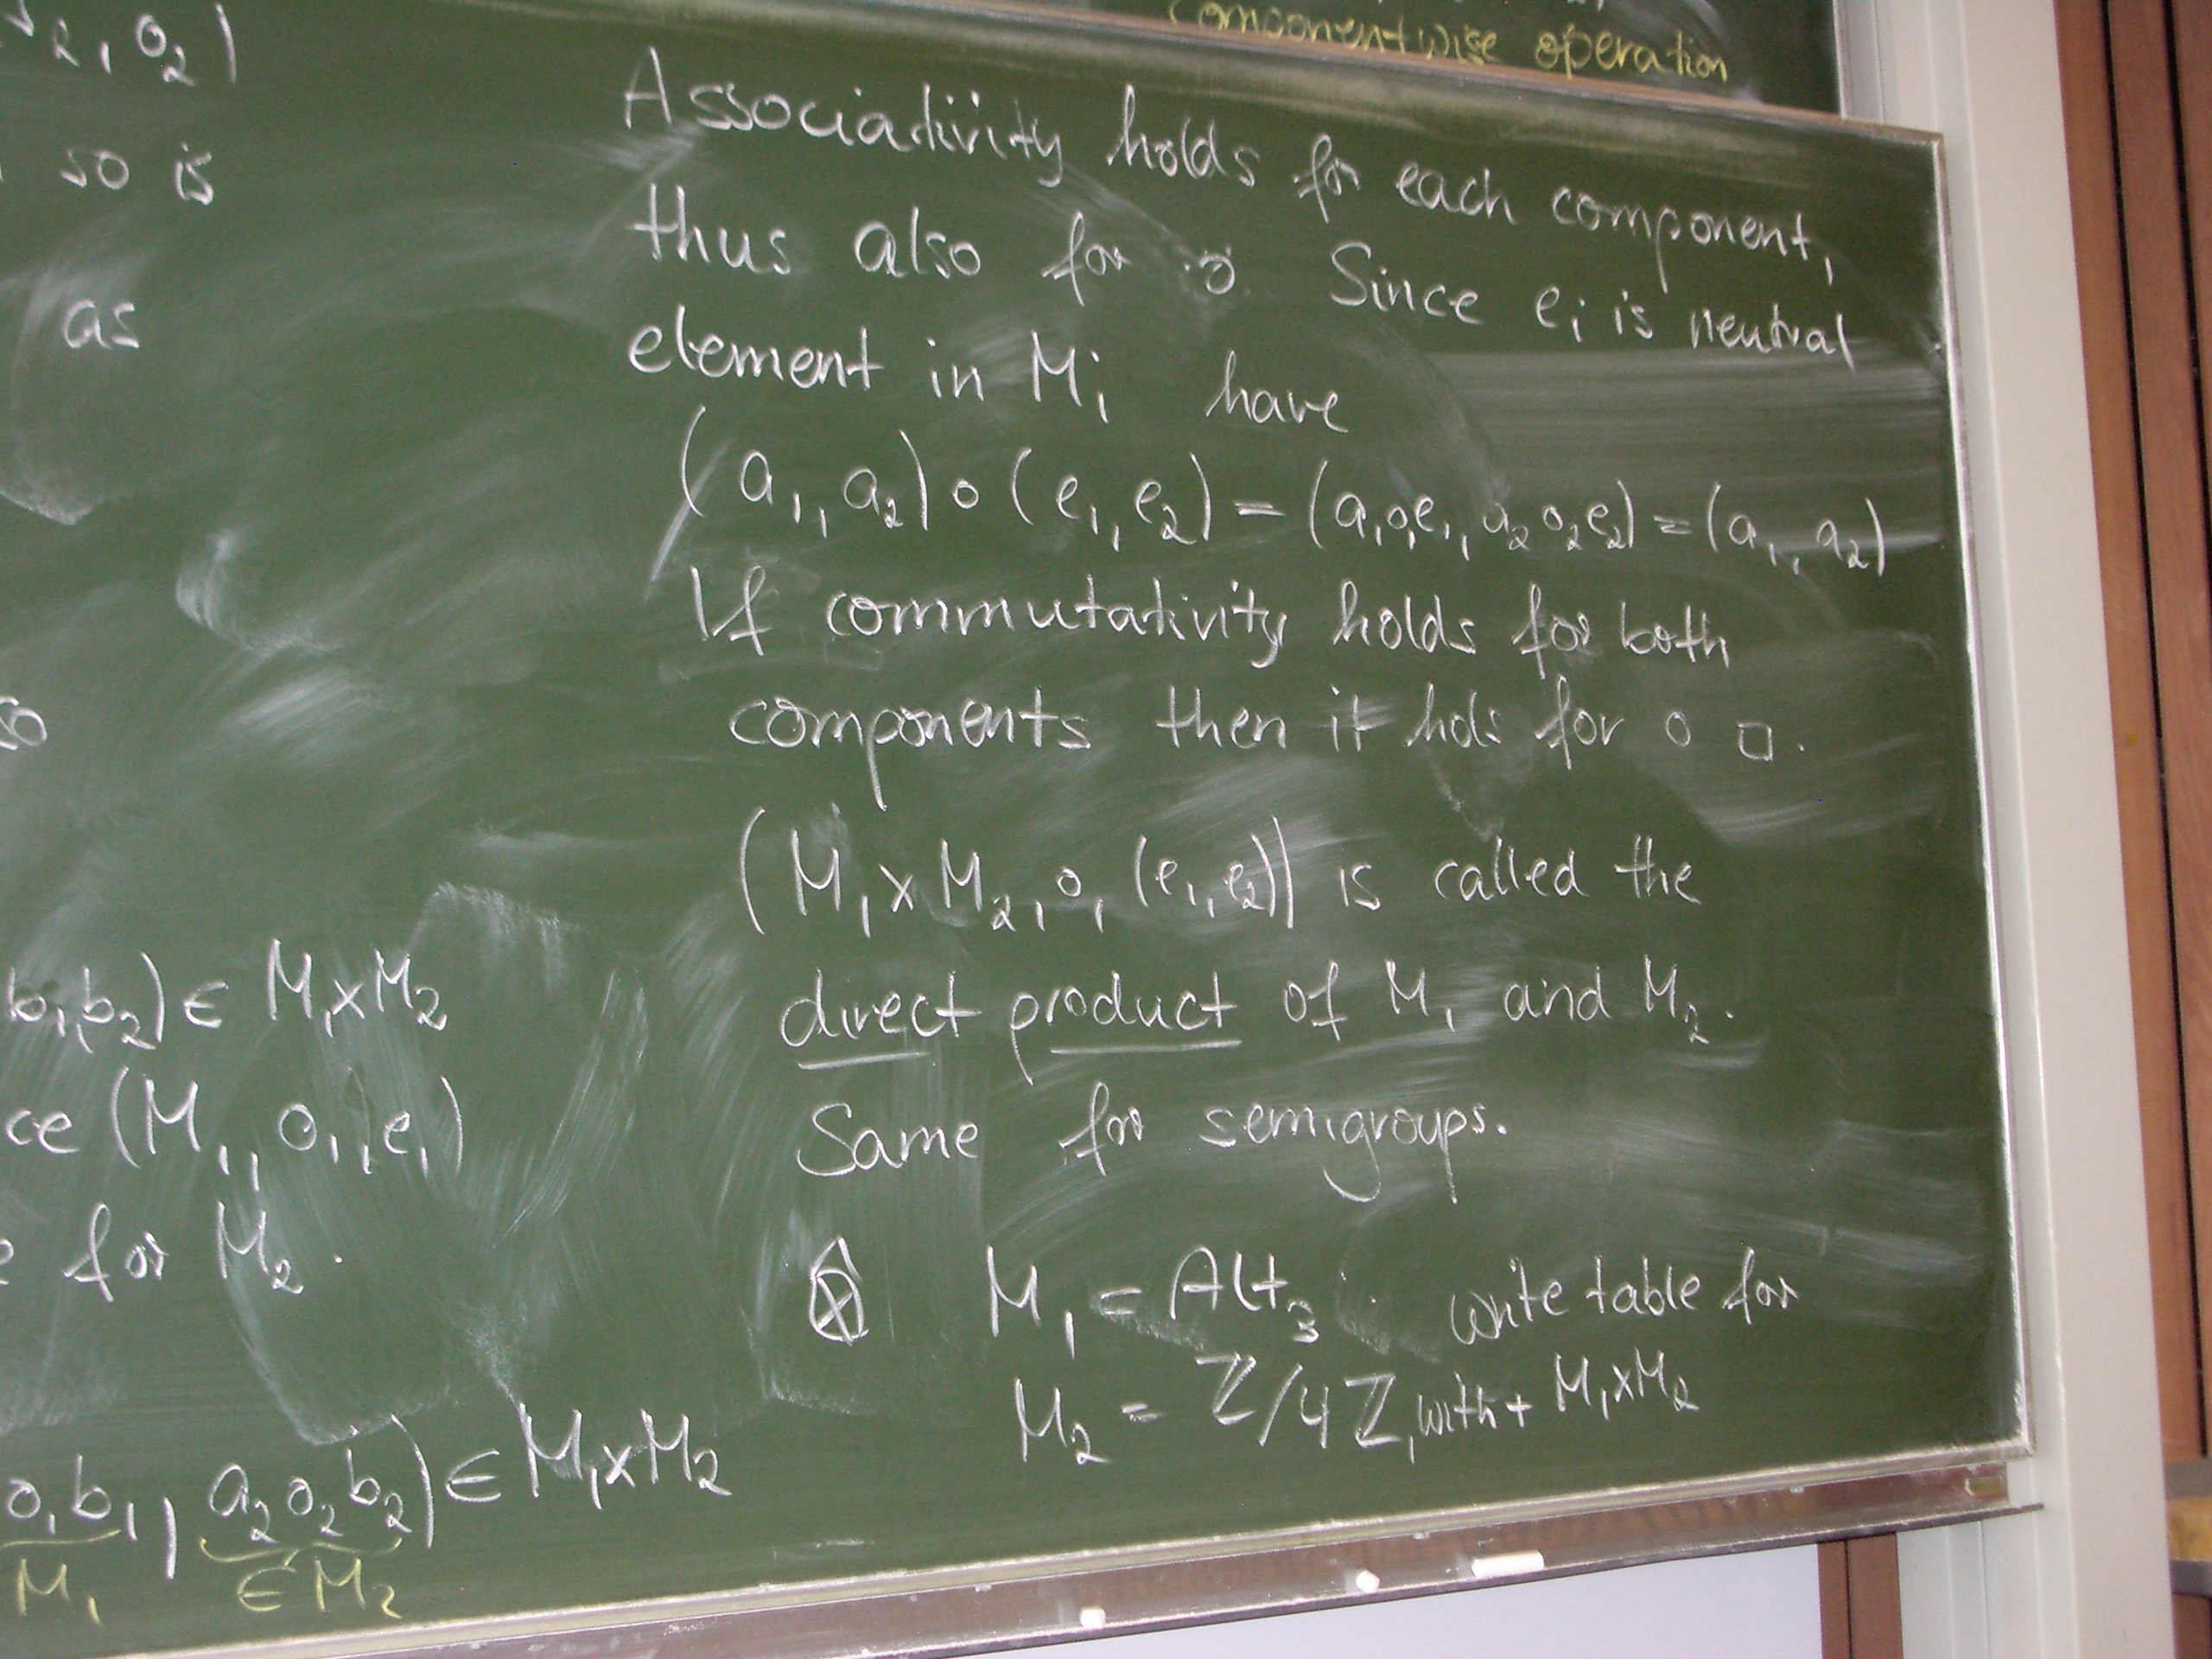 componentwise operation
2, o2)
so is
as
so
b1,b2) ∈ M1×M2
ce (M1, o1, e1)
for M2.
o1b1, a2 o2 b2) ∈ M1×M2
M1 ∈ M2
Associativity holds for each component,
thus also for o. Since ei is neutral
element in Mi have
(a1, a2) o (e1, e2) = (a1 o1 e1, a2 o2 e2) = (a1, a2)
If commutativity holds for both
components then it hols for o □.
(M1 × M2, o, (e1, e2)) is called the
direct product of M1 and M2.
Same for semigroups.
M1 = Alt3 write table for
M2 = ℤ/4ℤ, with + M1×M2